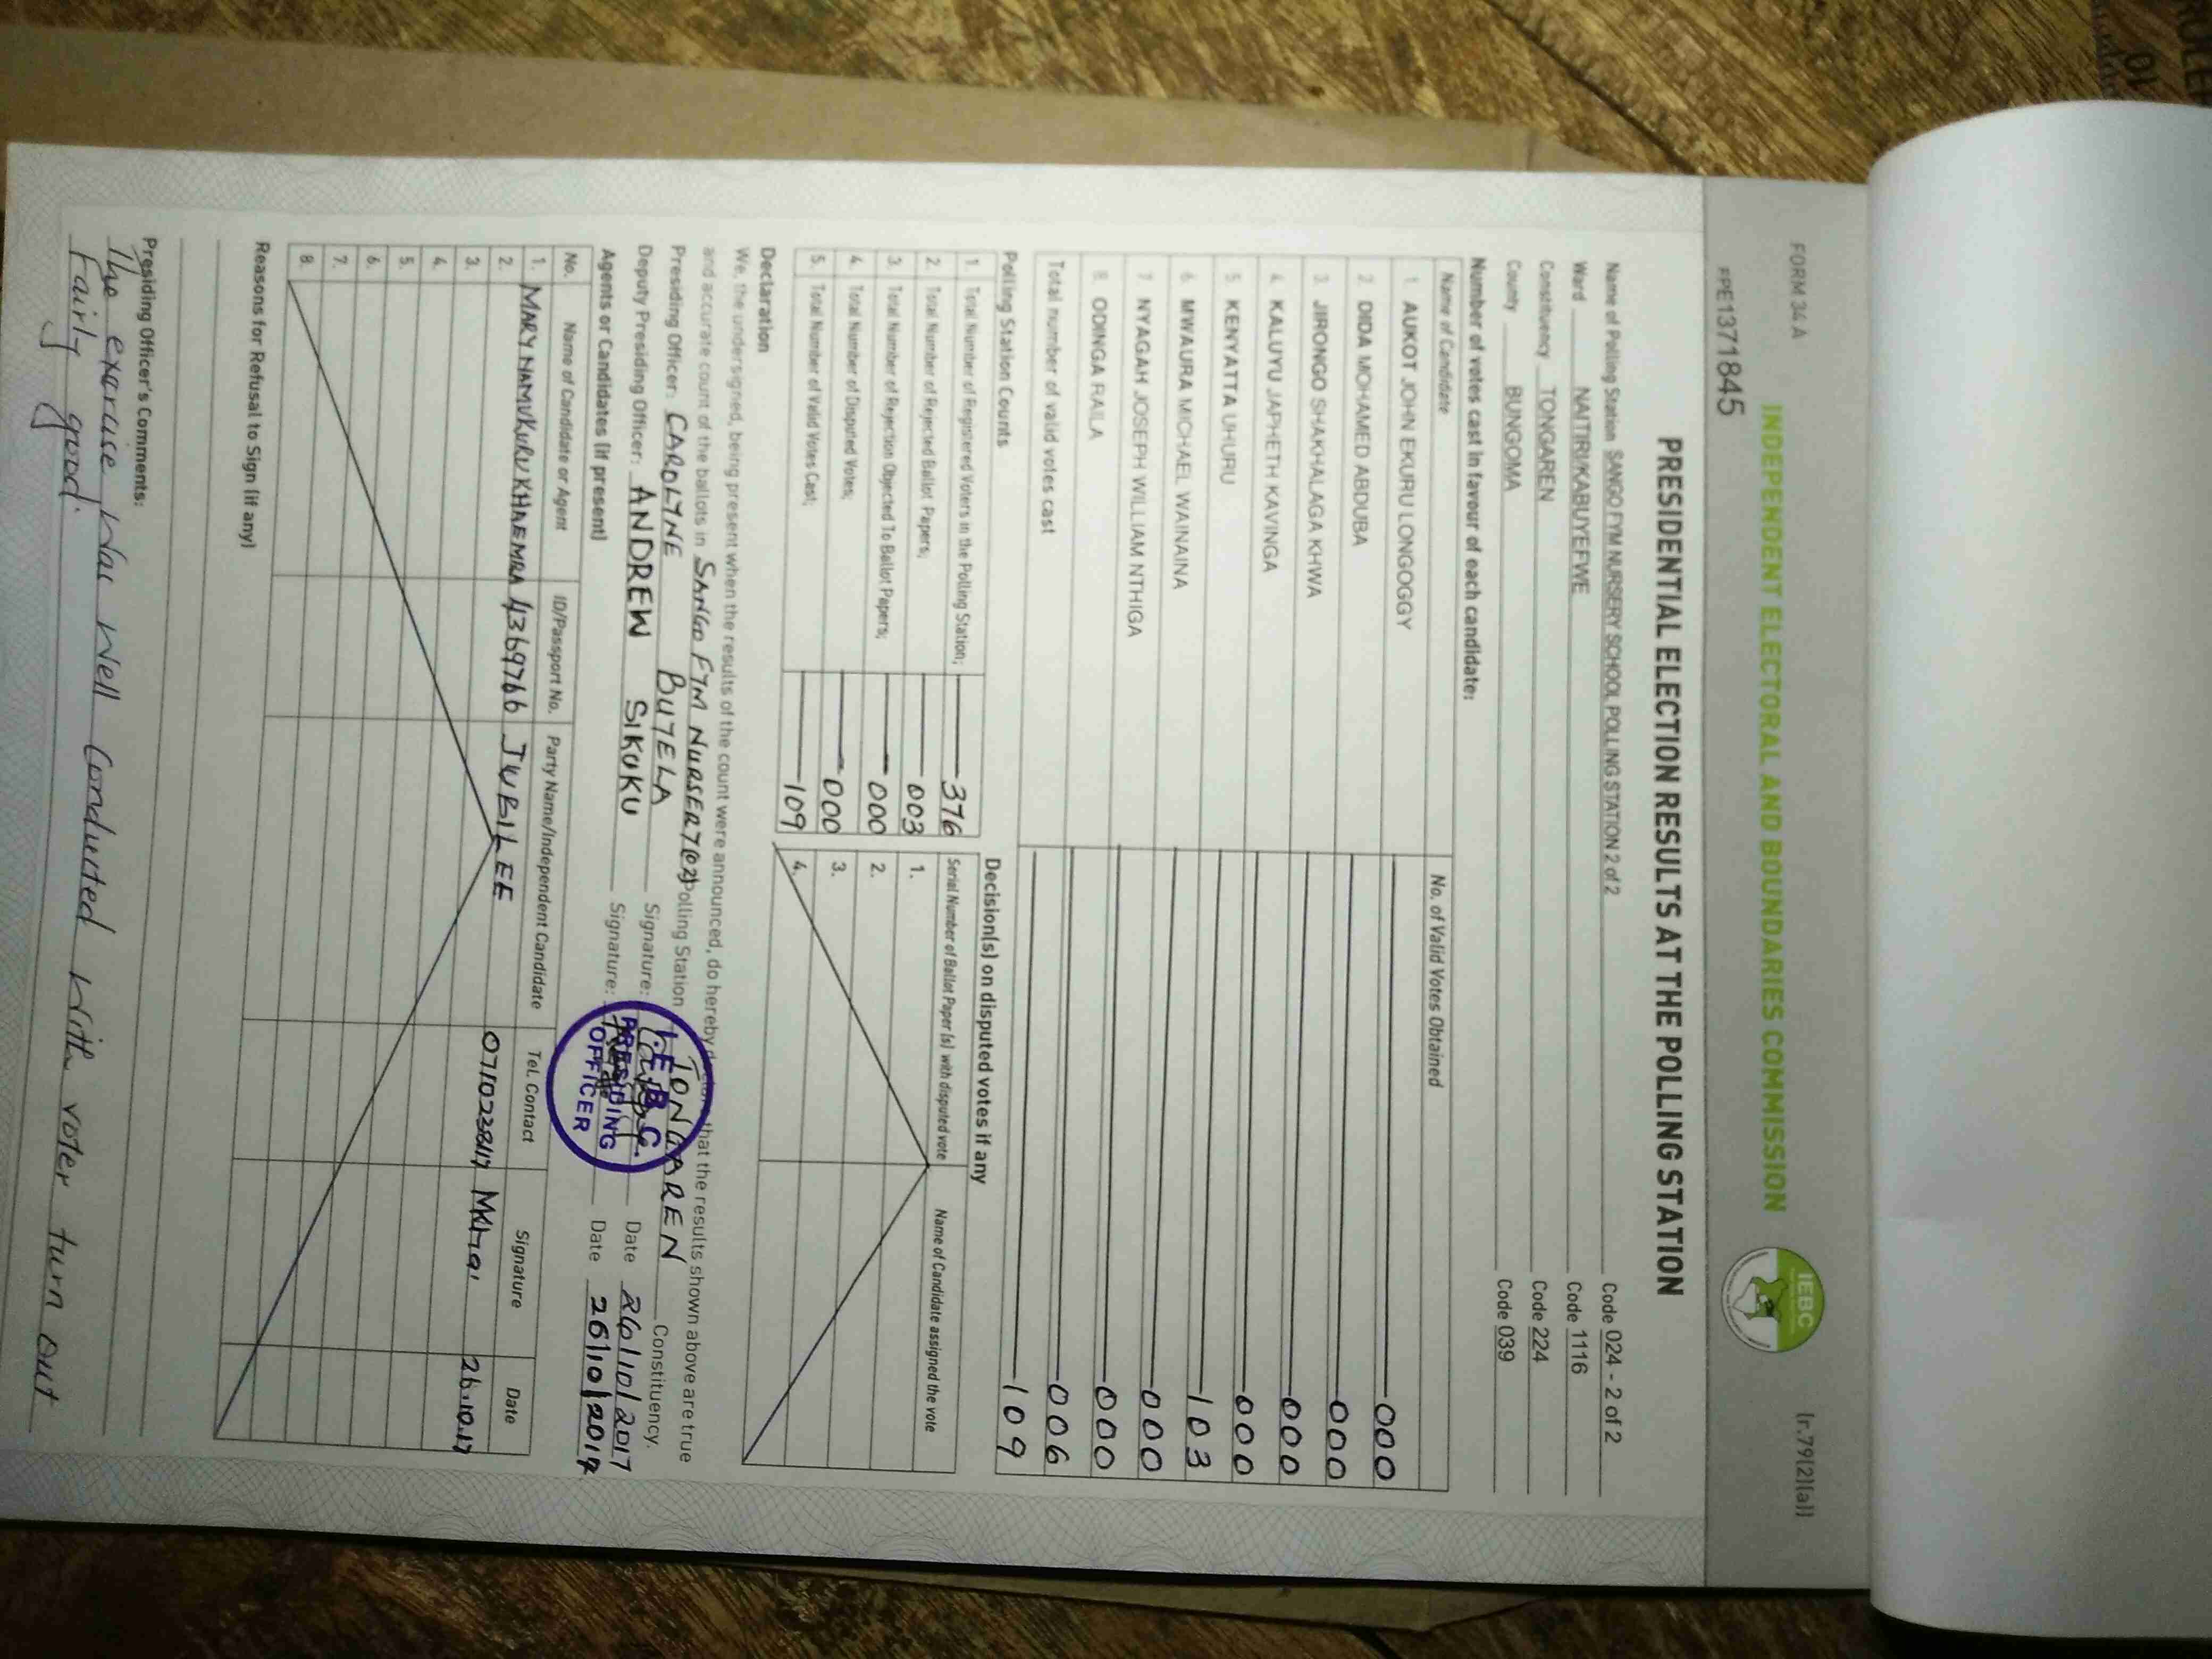 FORM 34 A
(r.79(2)(a))
INDEPENDENT ELECTORAL AND BOUNDARIES COMMISSION
IEBC
PRESIDENTIAL ELECTION RESULTS AT THE POLLING STATION
Name of Polling Station SANGO FYM NURSERY SCHOOL POLLING STATION 2 of 2 Code 024 - 2 of 2
Ward NAITIRI/KABUYEFWE Code 1116
Constituency TONGAREN Code 224
County BUNGOMA Code 039
Number of votes cast in favour of each candidate:
Name of Candidate No. of Valid Votes Obtained
1. AUKOT JOHN EKURU LONGOGGY 000
2. DIDA MOHAMED ABDUBA 000
3. JIRONGO SHAKHALAGA KHWA 000
4. KALUYU JAPHETH KAVINGA 000
5. KENYATTA UHURU 103
6. MWAURA MICHAEL WAINAINA 000
7. NYAGAH JOSEPH WILLIAM NTHIGA 000
8. ODINGA RAILA 006
Total number of valid votes cast 109
Polling Station Counts
1. Total Number of Registered Voters in the Polling Station; 376
2. Total Number of Rejected Ballot Papers; 003
3. Total Number of Rejection Objected To Ballot Papers; 000
4. Total Number of Disputed Votes; 000
5. Total Number of Valid Votes Cast; 109
Decision(s) on disputed votes if any
Serial Number of Ballot Paper (s) with disputed vote Name of Candidate assigned the vote
1.
2.
3.
4.
Declaration
We, the undersigned, being present when the results of the count were announced, do hereby that the results shown above are true
and accurate count of the ballots in SANGO FYM NURSERY Polling Station TONGAREN Constituency.
Presiding Officer: CAROLYNE BUTELA Signature: Date 26/10/2017
Deputy Presiding Officer: ANDREW SIKUKU Signature: Date 26/10/2017
I.E.B.C.
PRESIDING
OFFICER
Agents or Candidates (if present)
No. Name of Candidate or Agent ID/Passport No. Party Name/Independent Candidate Tel. Contact Signature Date
1. MARY NAMUKURU KHAEMBA 4369766 JUBILEE 0710238117 26.10.17
2.
3.
4.
5.
6.
7.
8.
Reasons for Refusal to Sign (if any)
Presiding Officer's Comments:
The exercise was well conducted with voter turn out
Fairly good.